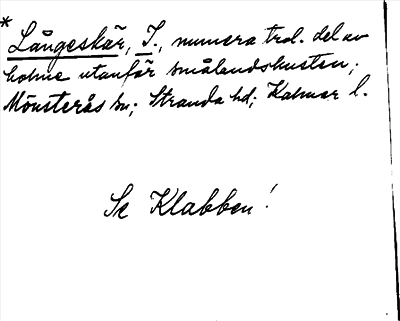 * Långeskär, I., numera trol. del av
holme utanför smålandskusten,
Mönsterås sn; Stranda hd; Kalmar l.
Se Klabben!